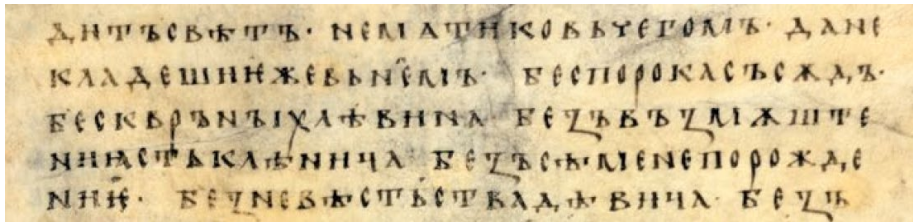 дитъсвѣтъ· нематиковьчегомъ· дане
кладешинꙗжевьнемь· беспорокасъсѫдъ·
бесквръныхлѣвина беꙁъвъꙁмѫште
ниꙗстькаѣнича беꙁъсѣменепорожде
ниѥ· беꙁневѣстьствадѣвича беꙁъ